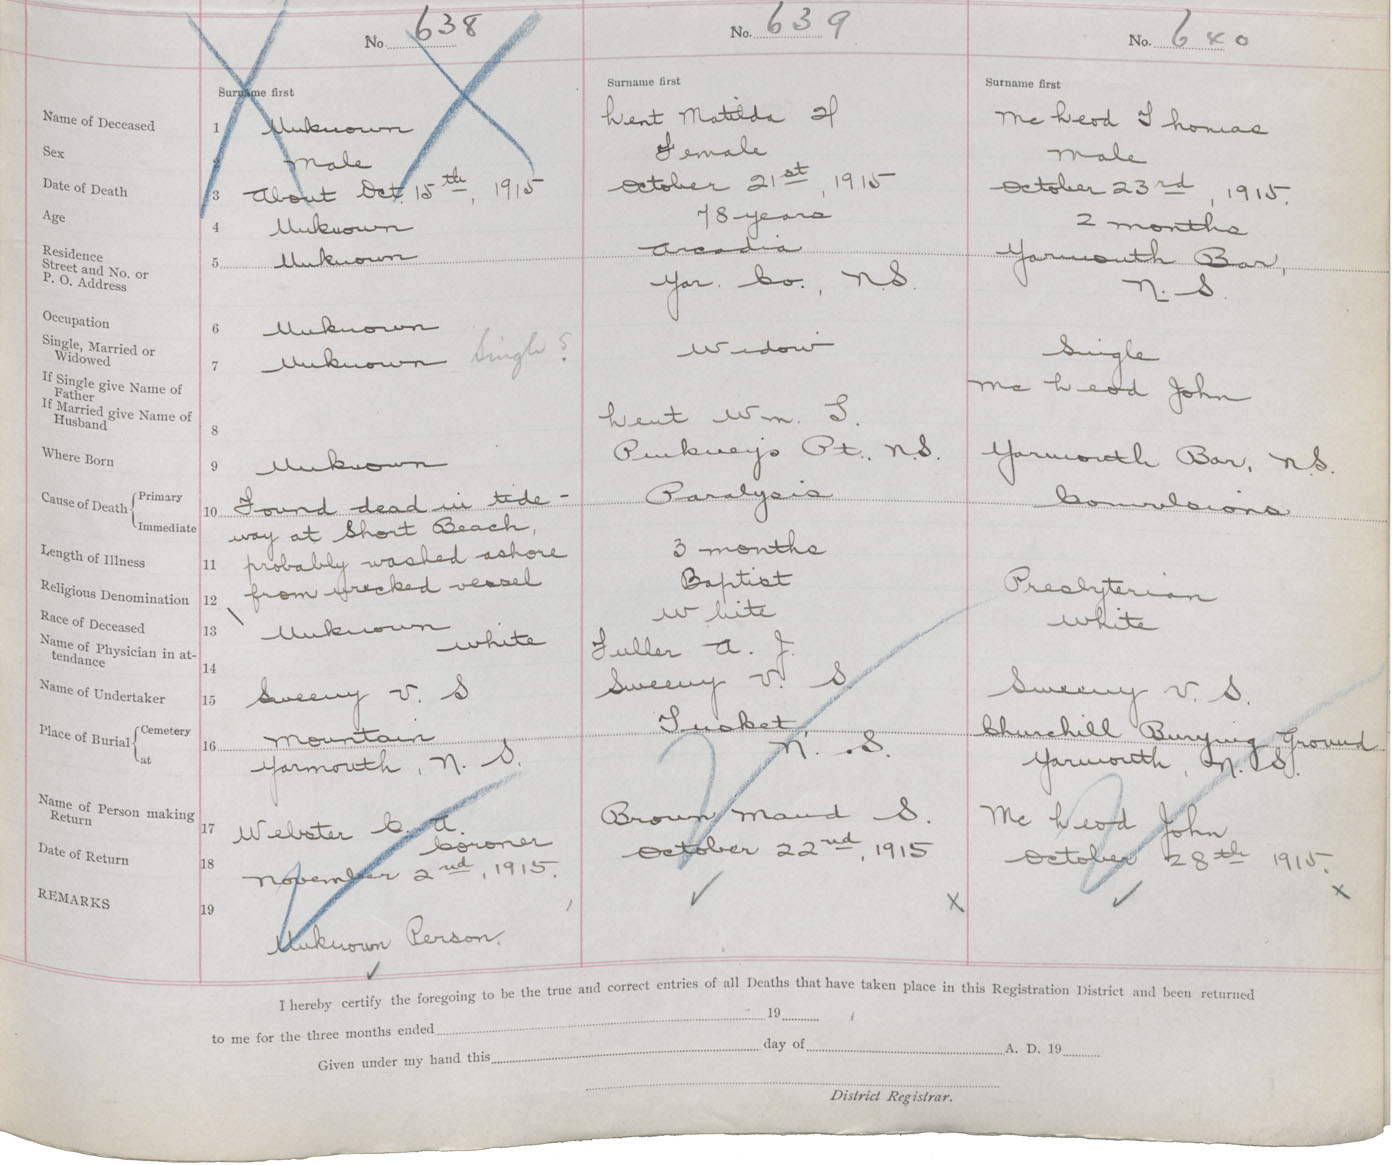 No. 638
No. 639
No. 640
Surname first
Surname first
Surname first
Name of Deceased 1 Unknown Lent Matilda H McLeod Thomas
Sex 2 Male Female Male
Date of Death 3 About Oct. 15th, 1915 October 21st, 1915 October 23rd, 1915.
Age 4 Unknown 78 years 2 months
Residence
Street and No. or
P. O. Address
5 Unknown Arcadia Yarmouth Bar,
Yar. Co., N.S. N. S.
Occupation 6 Unknown
Single, Married or
Widowed 7 Unknown Single? Widow Single
If Single give Name of
Father McLeod John
If Married give Name of
Husband 8 Lent Wm. T.
Where Born 9 Unknown Pinkney's Pt., N.S. Yarmouth Bar, N.S.
Cause of Death Primary
Immediate
10 Found dead in tide- Paralysis Convulsions
way at Short Beach,
Length of Illness 11 probably washed ashore 3 months
Religious Denomination 12 from wrecked vessel Baptist Presbyterian
Race of Deceased 13 Unknown white White White
Name of Physician in at-
tendance 14 Fuller A. J.
Name of Undertaker 15 Sweeny V. S Sweeny V. S. Sweeny V. S.
Place of Burial Cemetery
at
16 Mountain Tusket Churchill Burying Ground
Yarmouth, N. S. N. S. Yarmouth, N. S.
Name of Person making
Return 17 Webster C. A. Brown Maud S. McLeod John
Coroner
Date of Return 18 November 2nd, 1915. October 22nd, 1915 October 28th 1915.
REMARKS 19
Unknown Person.
I hereby certify the foregoing to be the true and correct entries of all Deaths that have taken place in this Registration District and been returned
to me for the three months ended 19
Given under my hand this day of A. D. 19
District Registrar.